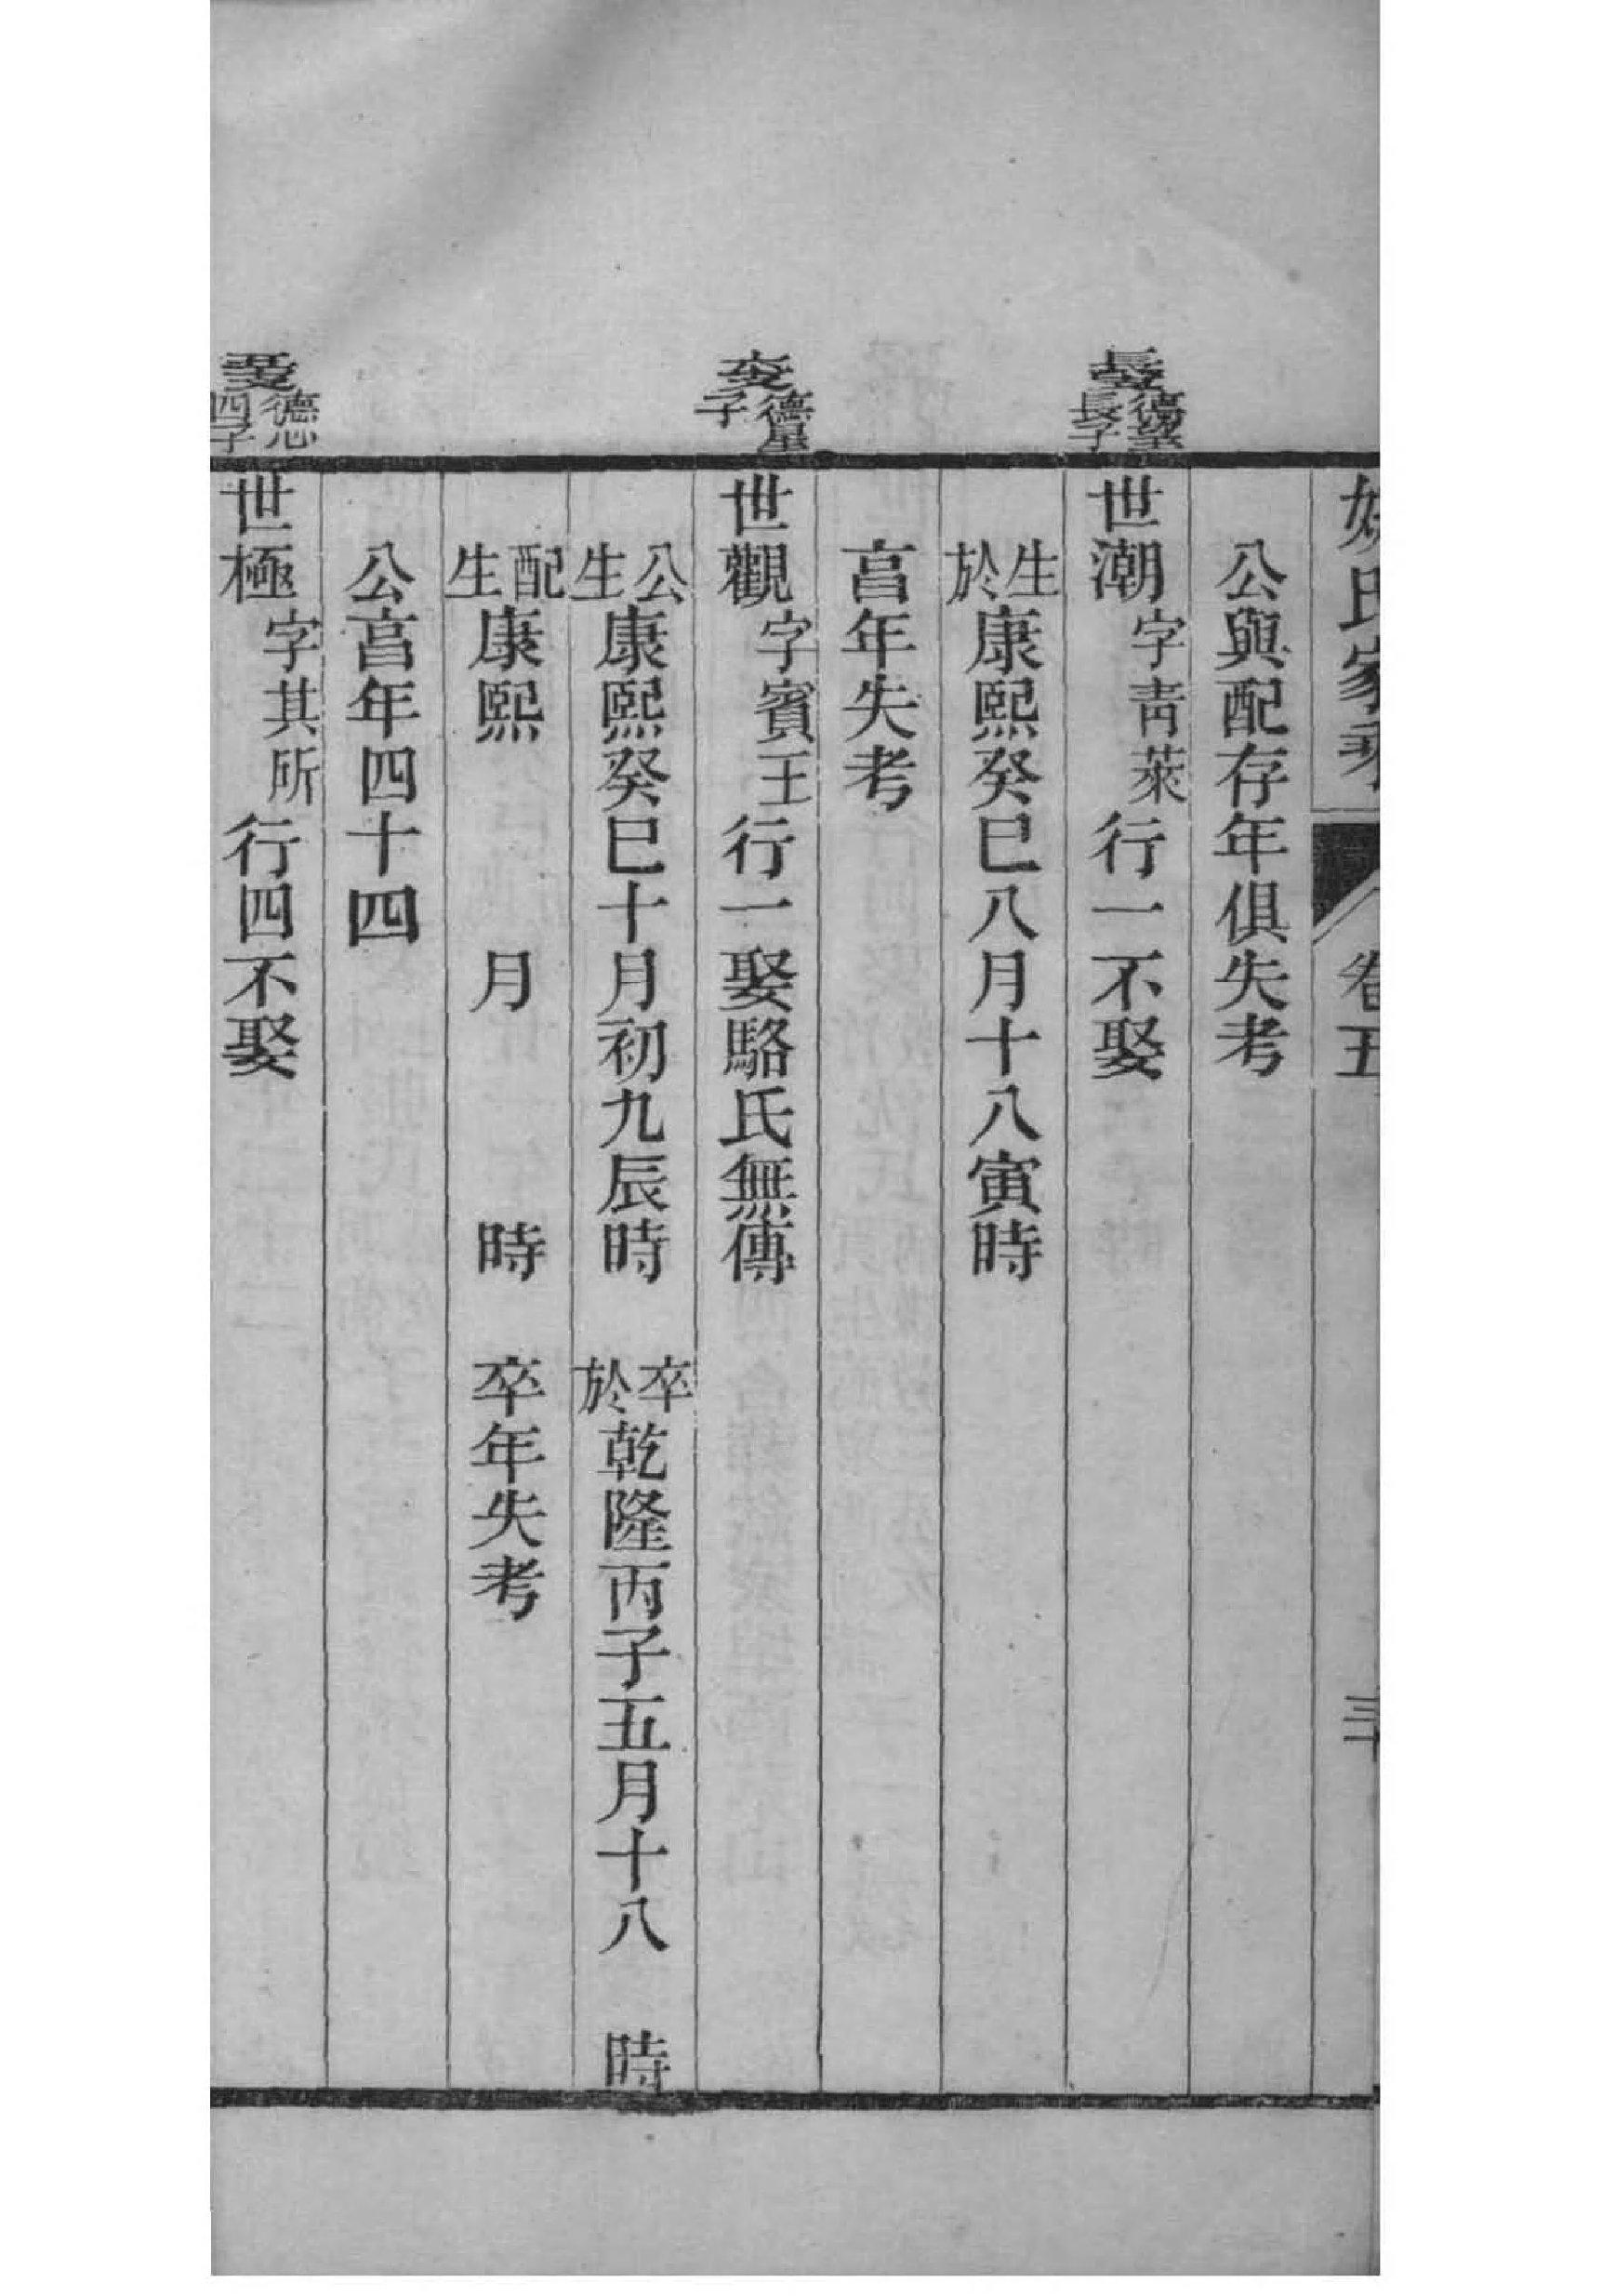 姚氏家乘 卷五
公與配存年俱失考
長受 德望長子
世潮 字靑萊 行一不娶
生於康熙癸巳八月十八寅時
亯年失考
德星子
世觀 字賓王 行一娶駱氏無傳
公生康熙癸巳十月初九辰時 卒於乾隆丙子五月十八 時
配生康熙 月 時 卒年失考
公亯年四十四
德 四子
世極 字其所 行四不娶